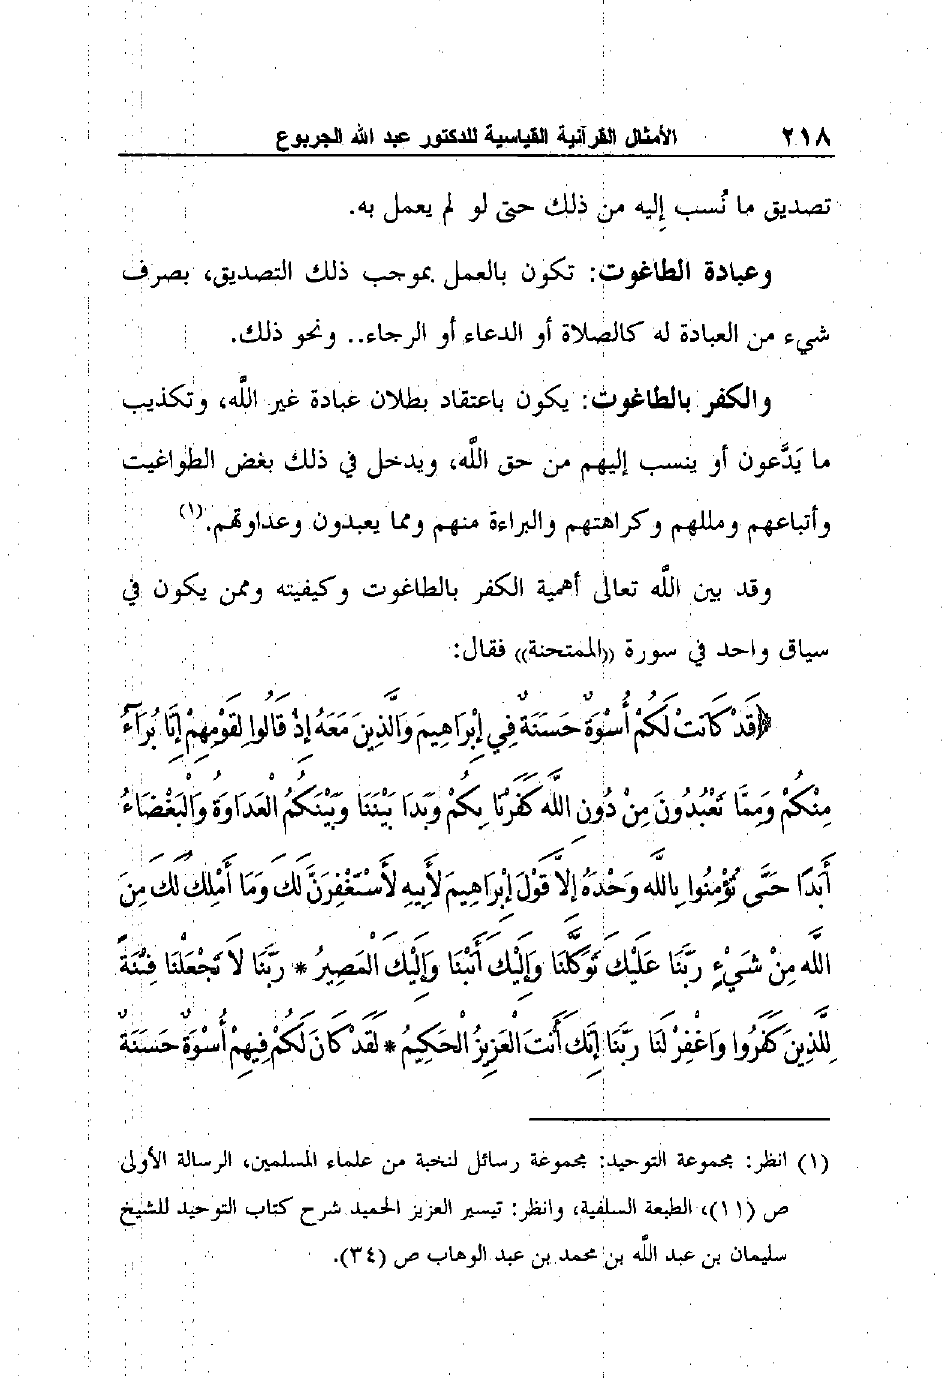 ٢١٨ الأمثال القرآنية القياسية للدكتور عبد الله الجربوع
تصديق ما نُسب إليه من ذلك حتى لو لم يعمل به.
وعبادة الطاغوت: تكون بالعمل بموجب ذلك التصديق، بصرف
شيء من العبادة له كالصلاة أو الدعاء أو الرجاء.. ونحو ذلك.
والكفر بالطاغوت: يكون باعتقاد بطلان عبادة غير اللَّه، وتكذيب
ما يَدَّعون أو ينسب إليهم من حق اللَّه، ويدخل في ذلك بغض الطواغيت
وأتباعهم ومللهم وكراهتهم والبراءة منهم ومما يعبدون وعداوتهم.(١)
وقد بين اللَّه تعالى أهمية الكفر بالطاغوت وكيفيته وممن يكون في
سياق واحد في سورة ((الممتحنة)) فقال:
﴿قَدْ كَانَتْ لَكُمْ أُسْوَةٌ حَسَنَةٌ فِي إِبْرَاهِيمَ وَالَّذِينَ مَعَهُ إِذْ قَالُوا لِقَوْمِهِمْ إِنَّا بُرَآءُ
مِنْكُمْ وَمِمَّا تَعْبُدُونَ مِنْ دُونِ اللَّهِ كَفَرْنَا بِكُمْ وَبَدَا بَيْنَنَا وَبَيْنَكُمُ الْعَدَاوَةُ وَالْبَغْضَاءُ
أَبَدًا حَتَّى تُؤْمِنُوا بِاللَّهِ وَحْدَهُ إِلَّا قَوْلَ إِبْرَاهِيمَ لِأَبِيهِ لَأَسْتَغْفِرَنَّ لَكَ وَمَا أَمْلِكُ لَكَ مِنَ
اللَّهِ مِنْ شَيْءٍ رَبَّنَا عَلَيْكَ تَوَكَّلْنَا وَإِلَيْكَ أَنَبْنَا وَإِلَيْكَ الْمَصِيرُ * رَبَّنَا لَا تَجْعَلْنَا فِتْنَةً
لِلَّذِينَ كَفَرُوا وَاغْفِرْ لَنَا رَبَّنَا إِنَّكَ أَنْتَ الْعَزِيزُ الْحَكِيمُ * لَقَدْ كَانَ لَكُمْ فِيهِمْ أُسْوَةٌ حَسَنَةٌ
(١) انظر: مجموعة التوحيد: مجموعة رسائل لنخبة من علماء المسلمين، الرسالة الأولى
ص (١١)، الطبعة السلفية، وانظر: تيسير العزيز الحميد شرح كتاب التوحيد للشيخ
سليمان بن عبد اللَّه بن محمد بن عبد الوهاب ص (٣٤).